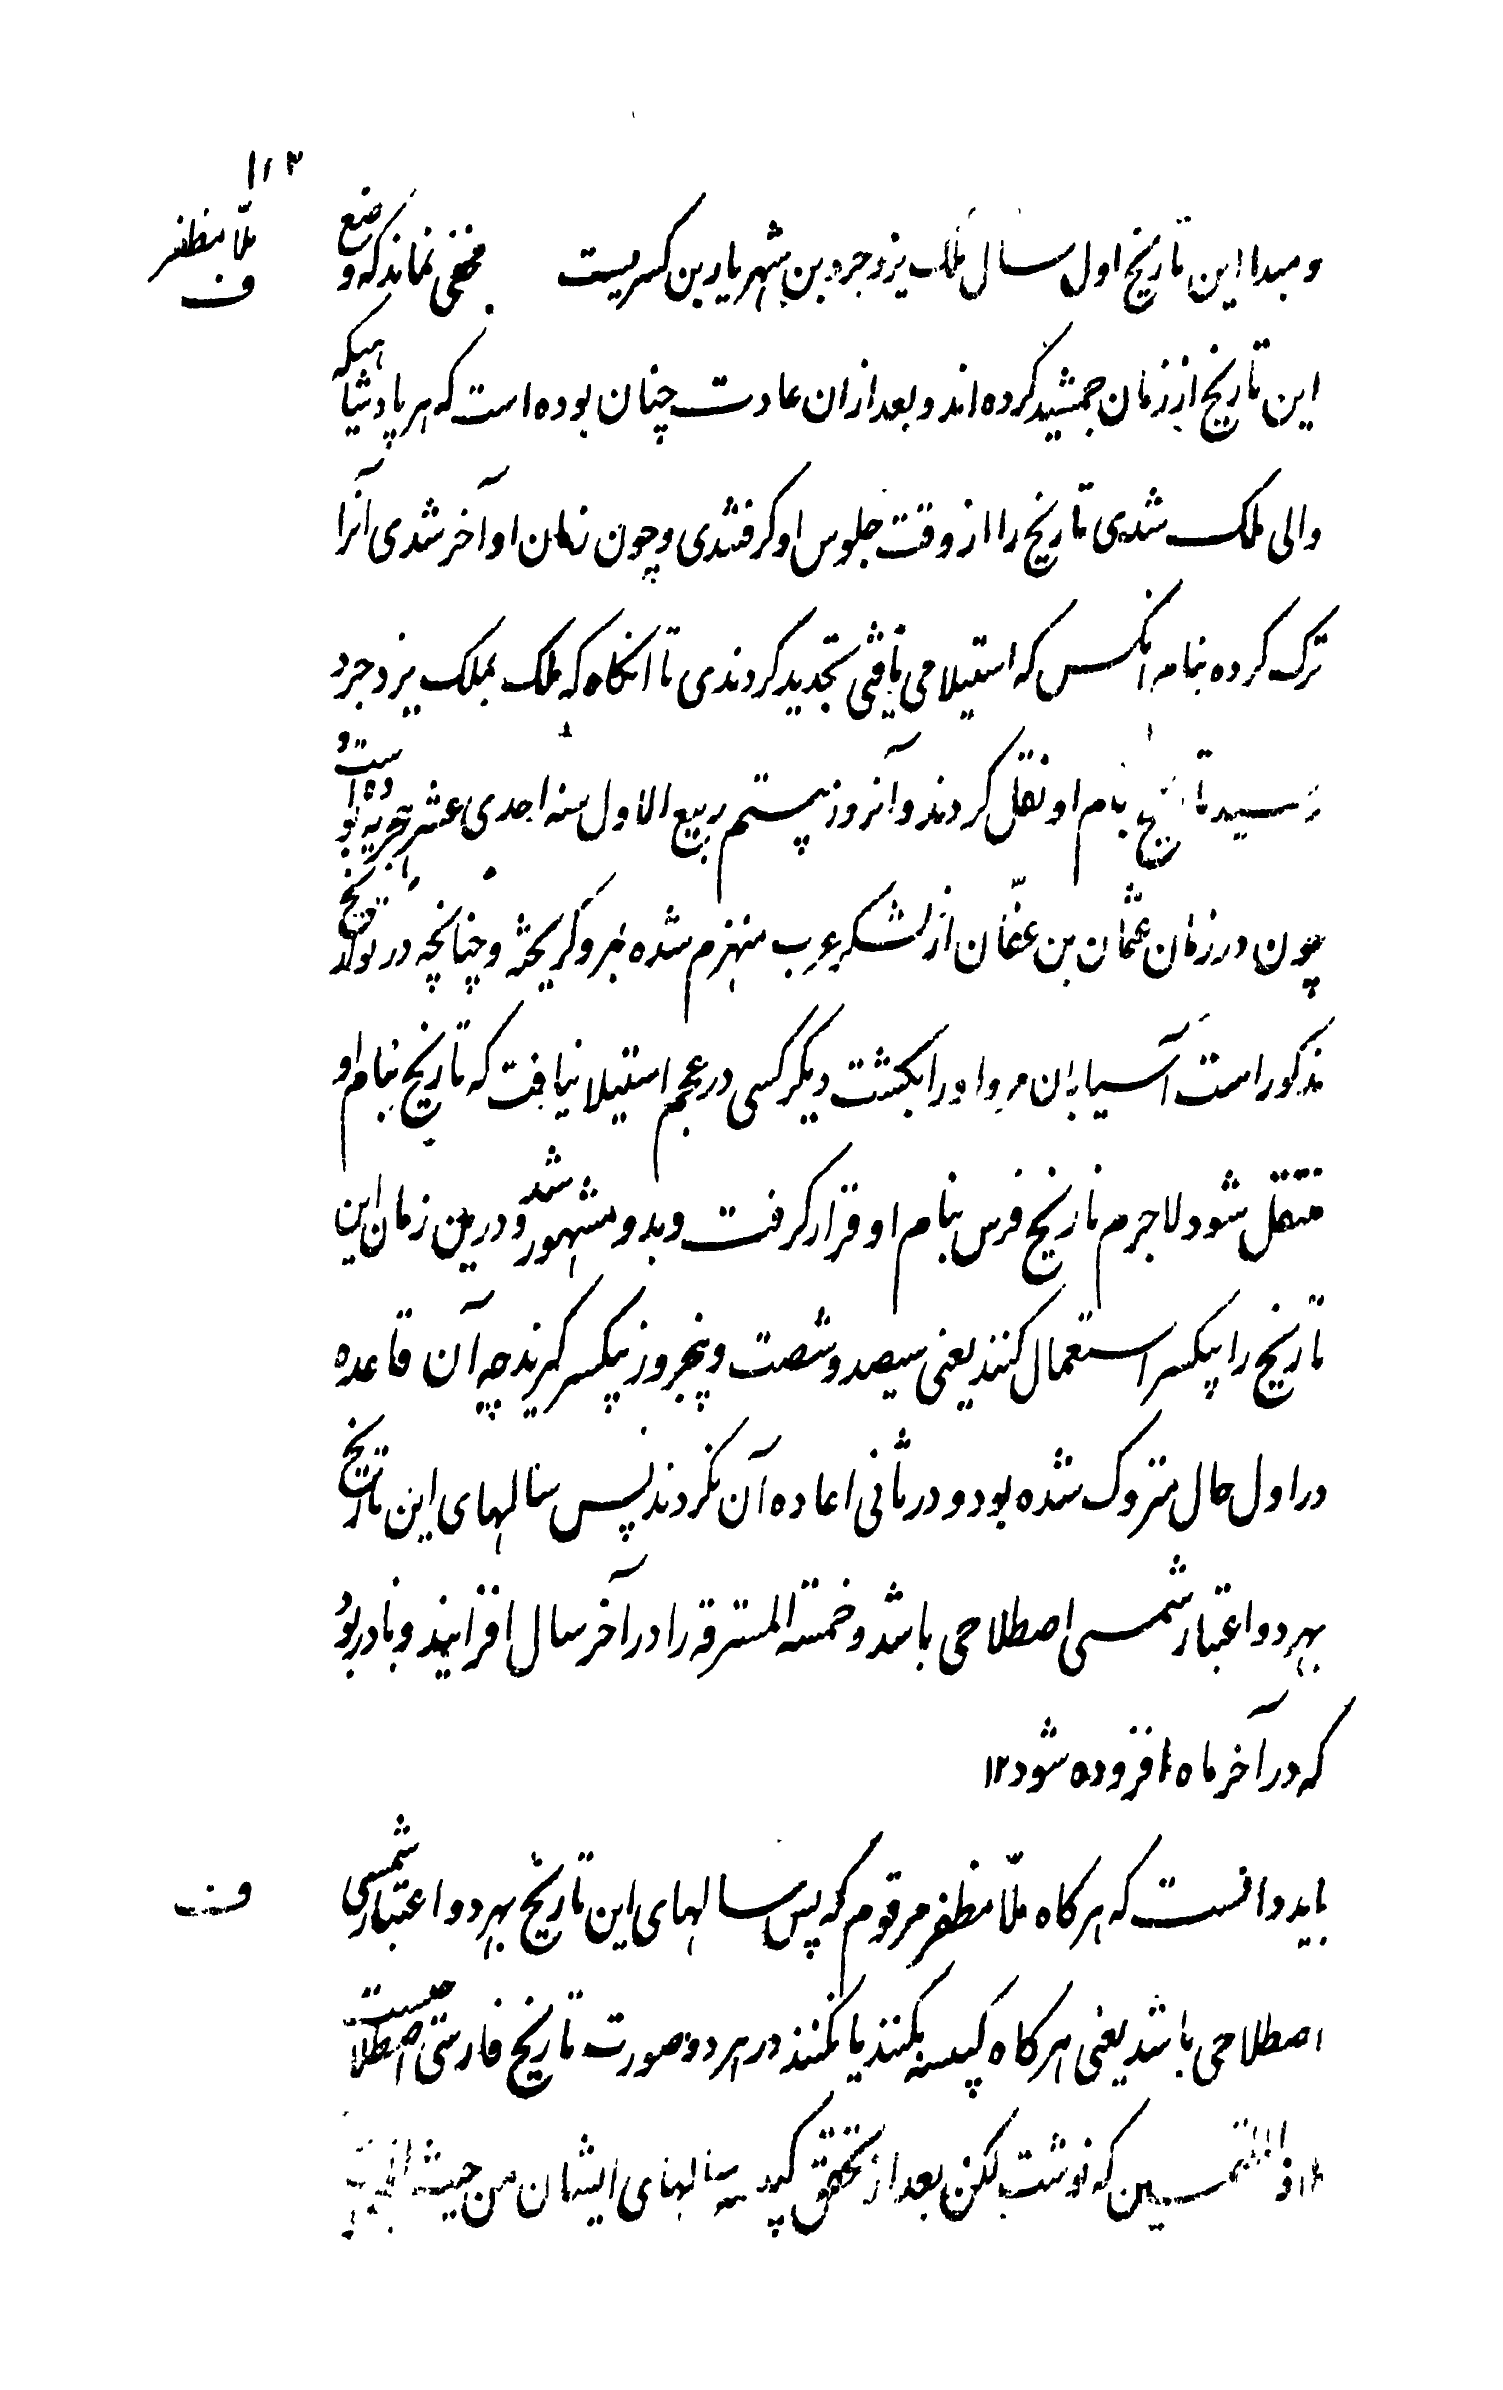 ۱۱۳
ملّا مظفر
ف
و مبدا این تاریخ اول سال ملک یزدجرد بن شهریار بن کسریست مخفی نماند که وضع
این تاریخ از زمان جمشید کرده اند و بعد ازان عادت چنان بوده است که هر پادشاهیکه
والی ملک شدی تاریخ را از وقت جلوس او گرفتندی و چون زمان او آخر شدی آنرا
ترک کرده بنام آنکس که استیلا می یافتی تجدید کردندی تا انکاه که ملک بملک یزدجرد
رسید تاریخ بنام او نقل کردند و آنروز بیستم ربیع الاول سنه احدی عشر هجریه بوده است و
چون در زمان عثمان بن عفّان از لشکر عرب منهزم شده بمرو گریخته و چنانچه در تواریخ
مذکور است آسیابان مرو اورا بکشت دیگر کسی در عجم استیلا نیافت که تاریخ بنام او
منتقل شود لاجرم تاریخ فرس بنام او قرار گرفت و بدو مشهور شد و درین زمان این
تاریخ را بیکسر استعمال کنند یعنی سیصد و شصت و پنجروز بیکسر گیرند چه آن قاعده
در اول حال متروک شده بود و در ثانی اعاده آن نکردند پس سالهای این تاریخ
بهر دو اعتبار شمسی اصطلاحی باشد و خمسة المسترقه را در آخر سال افزایند و نادر بود
که در آخر ماه افزوده شود ۱۲
ف
باید دانست که هر کاه ملّا مظفر مرقوم که پس سالهای این تاریخ بهر دو اعتبار شمسی
اصطلاحی باشد یعنی هر کاه کبیسه بکنند یا نکنند در هر دو صورت تاریخ فارسی اصطلاحیست
که نوشت لکن بعد از تحقق کبیسه سالهای ایشان من حیث